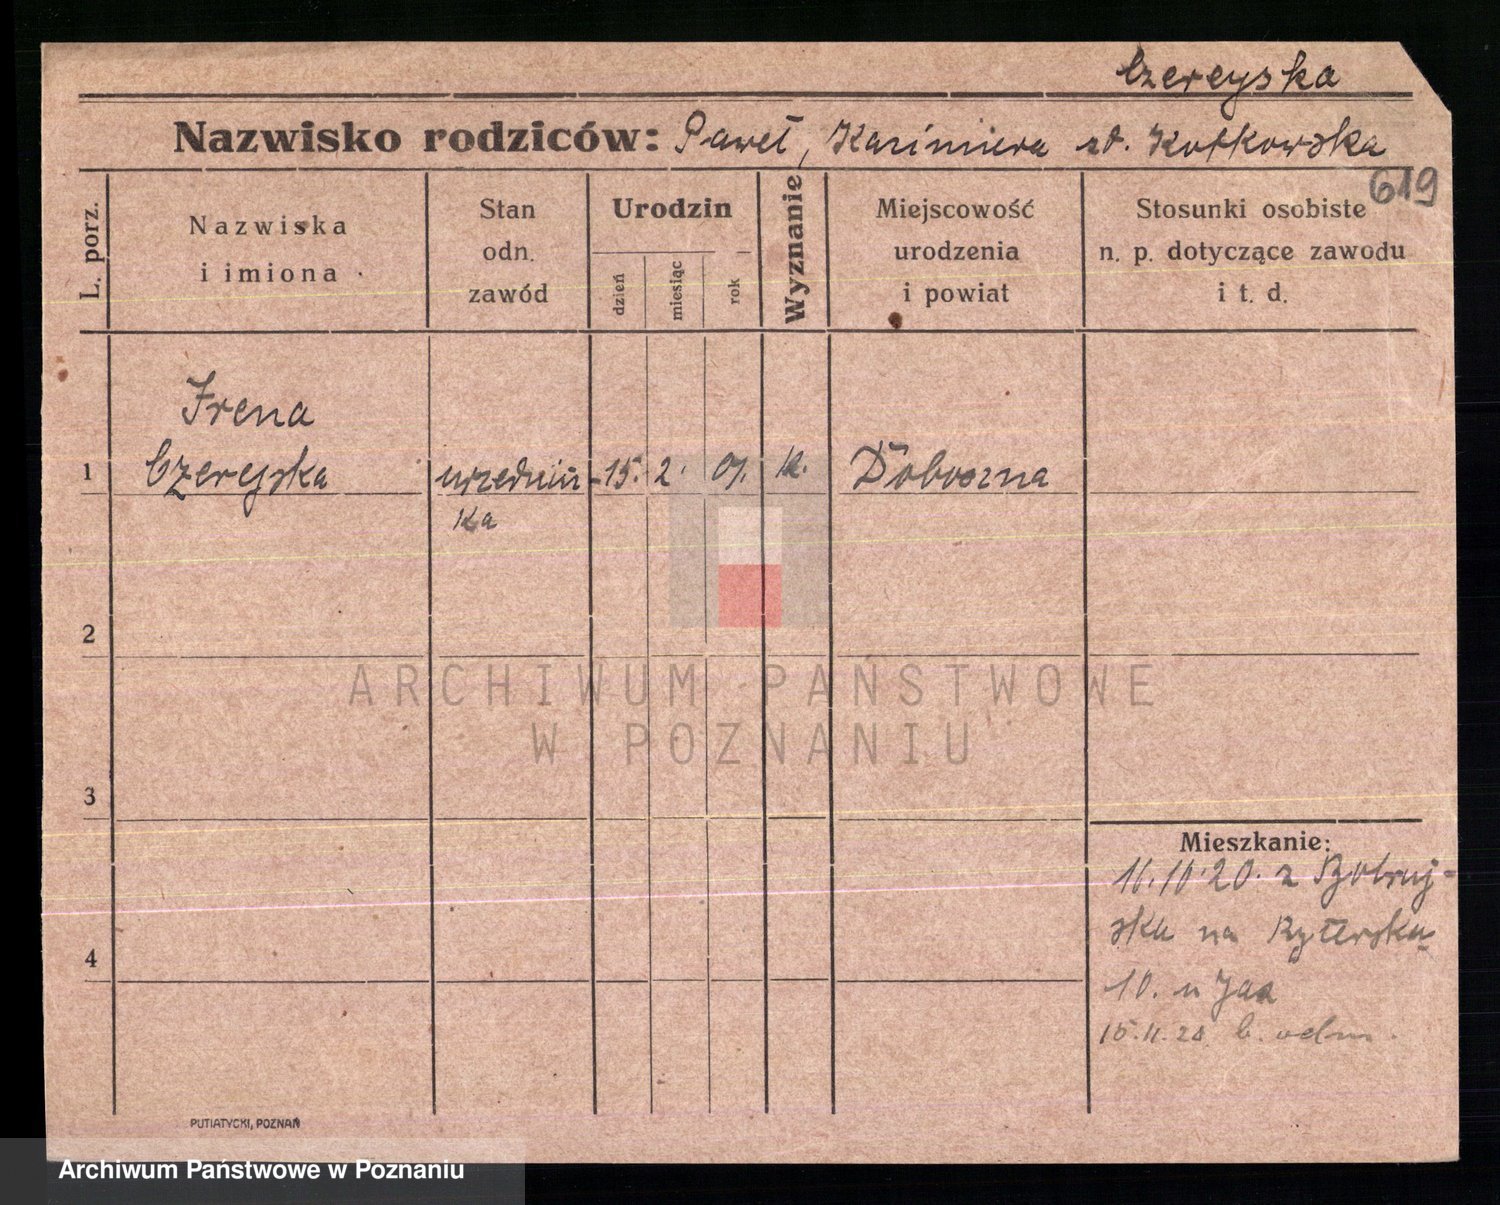 Czereyska
Nazwisko rodziców: Paweł, Kazimiera zd. Kotkowska
619
L. porz.
Nazwiska
i imiona
Stan
odn.
zawód
Urodzin
dzień
miesiąc
rok
Wyznanie
Miejscowość
urodzenia
i powiat
Stosunki osobiste
n. p. dotyczące zawodu
i t. d.
Irena
1 Czereyska urzędnicz- 15. 2. 01. k.
ka
2
ARCHIWUM PAŃSTWOWE
W POZNANIU
3
Mieszkanie:
16.10.20. z Bobruj-
ska na Rycerską
10. u Jaa
4
15.11.20. b. odm.
PUTIATYCKI, POZNAŃ
Archiwum Państwowe w Poznaniu